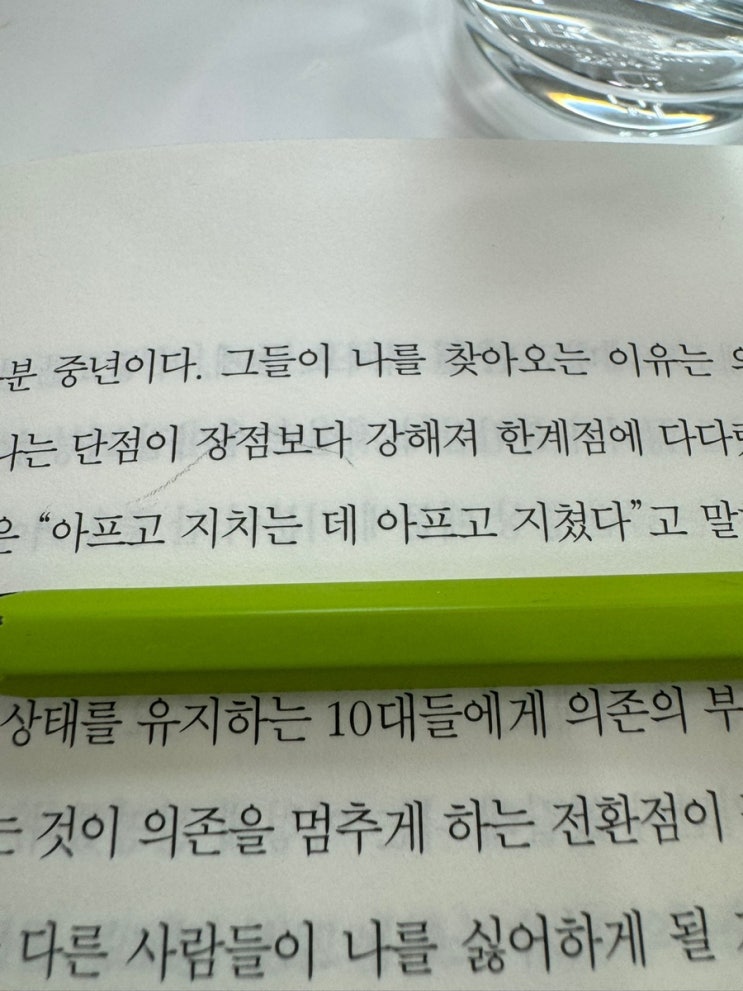 분 중년이다. 그들이 나를 찾아오는 이유는
나는 단점이 장점보다 강해져 한계점에
은 “아프고 지치는 데 아프고 지쳤다”고
상태를 유지하는 10대들에게 의존의
는 것이 의존을 멈추게 하는 전환점이
다른 사람들이 나를 싫어하게 될